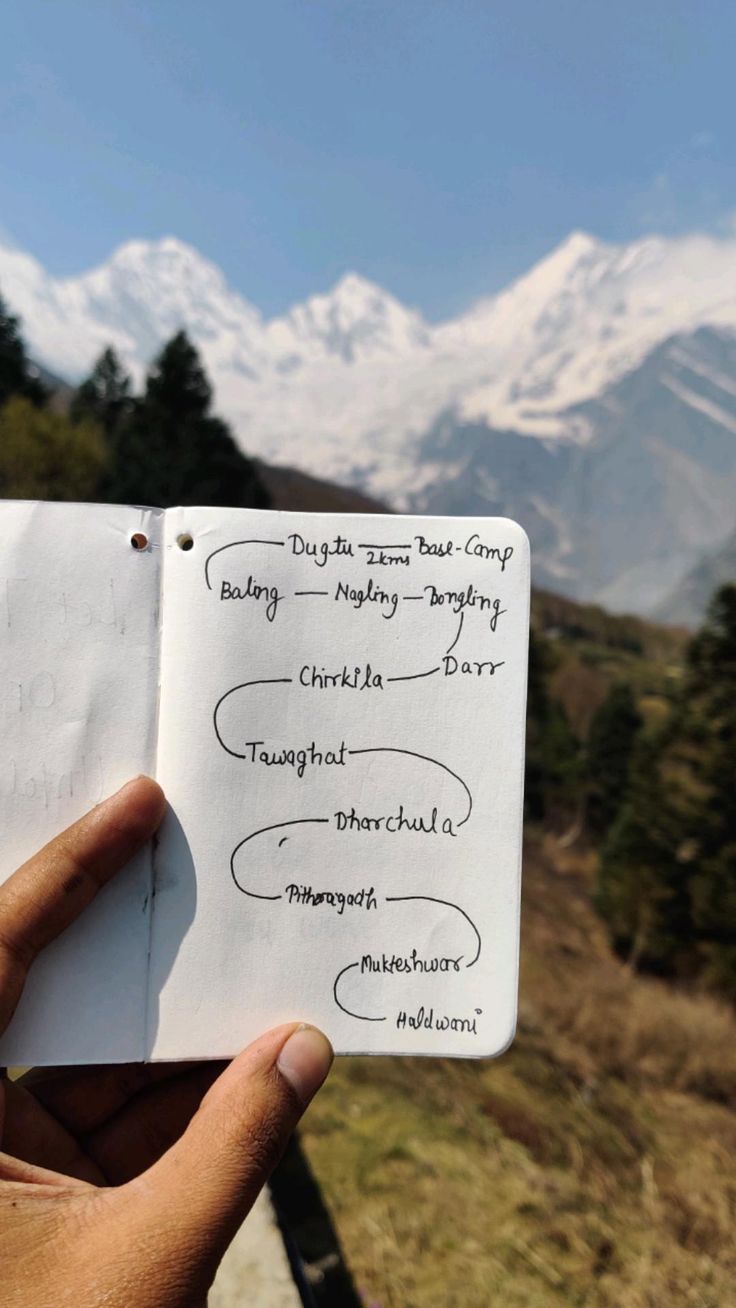 Dugtu 2kms Base-Camp
Baling — Nagling — Bongling
Darr
Chirkila
Tawaghat
Dharchula
Pithoragadh
Mukteshwar
Haldwani